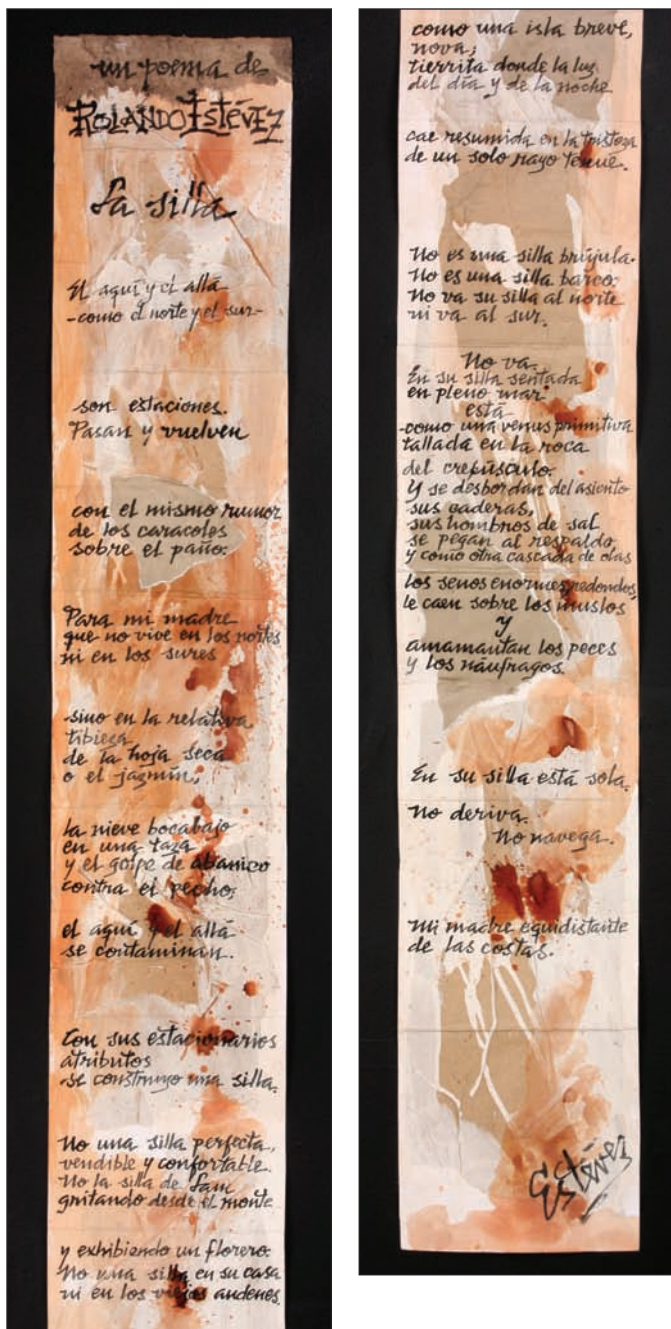 un poema de
ROLANDO EStÉVEZ
La silla
El aquí y el allá
-como el norte y el sur-
son estaciones.
Pasan y vuelven
con el mismo rumor
de los caracoles
sobre el paño.
Para mi madre
que no vive en los nortes
ni en los sures
sino en la relativa
tibieza
de la hoja seca
o el jazmín,
la nieve bocabajo
en una taza
y el golpe de abanico
contra el pecho;
el aquí y el allá
se contaminan.
Con sus estacionarios
atributos
se construyo una silla.
No una silla perfecta,
vendible y confortable.
No la silla de Lam
gritando desde el monte
y exhibiendo un florero.
No una silla en su casa
ni en los viejos andenes
como una isla breve,
nova;
tierrita donde la luz
del día y de la noche
cae resumida en la tristeza
de un solo rayo tenue.
No es una silla brújula.
No es una silla barco.
No va su silla al norte
ni va al sur.
No va.
En su silla sentada
en pleno mar
está
-como una venus primitiva
tallada en la roca
del crepúsculo.
Y se desbordan del asiento
sus caderas,
sus hombros de sal
se pegan al respaldo,
y como otra cascada de olas
los senos enormes, redondos,
le caen sobre los muslos
y
amamantan los peces
y los náufragos.
En su silla está sola.
No deriva.
No navega.
Mi madre equidistante
de las costas.
Estévez